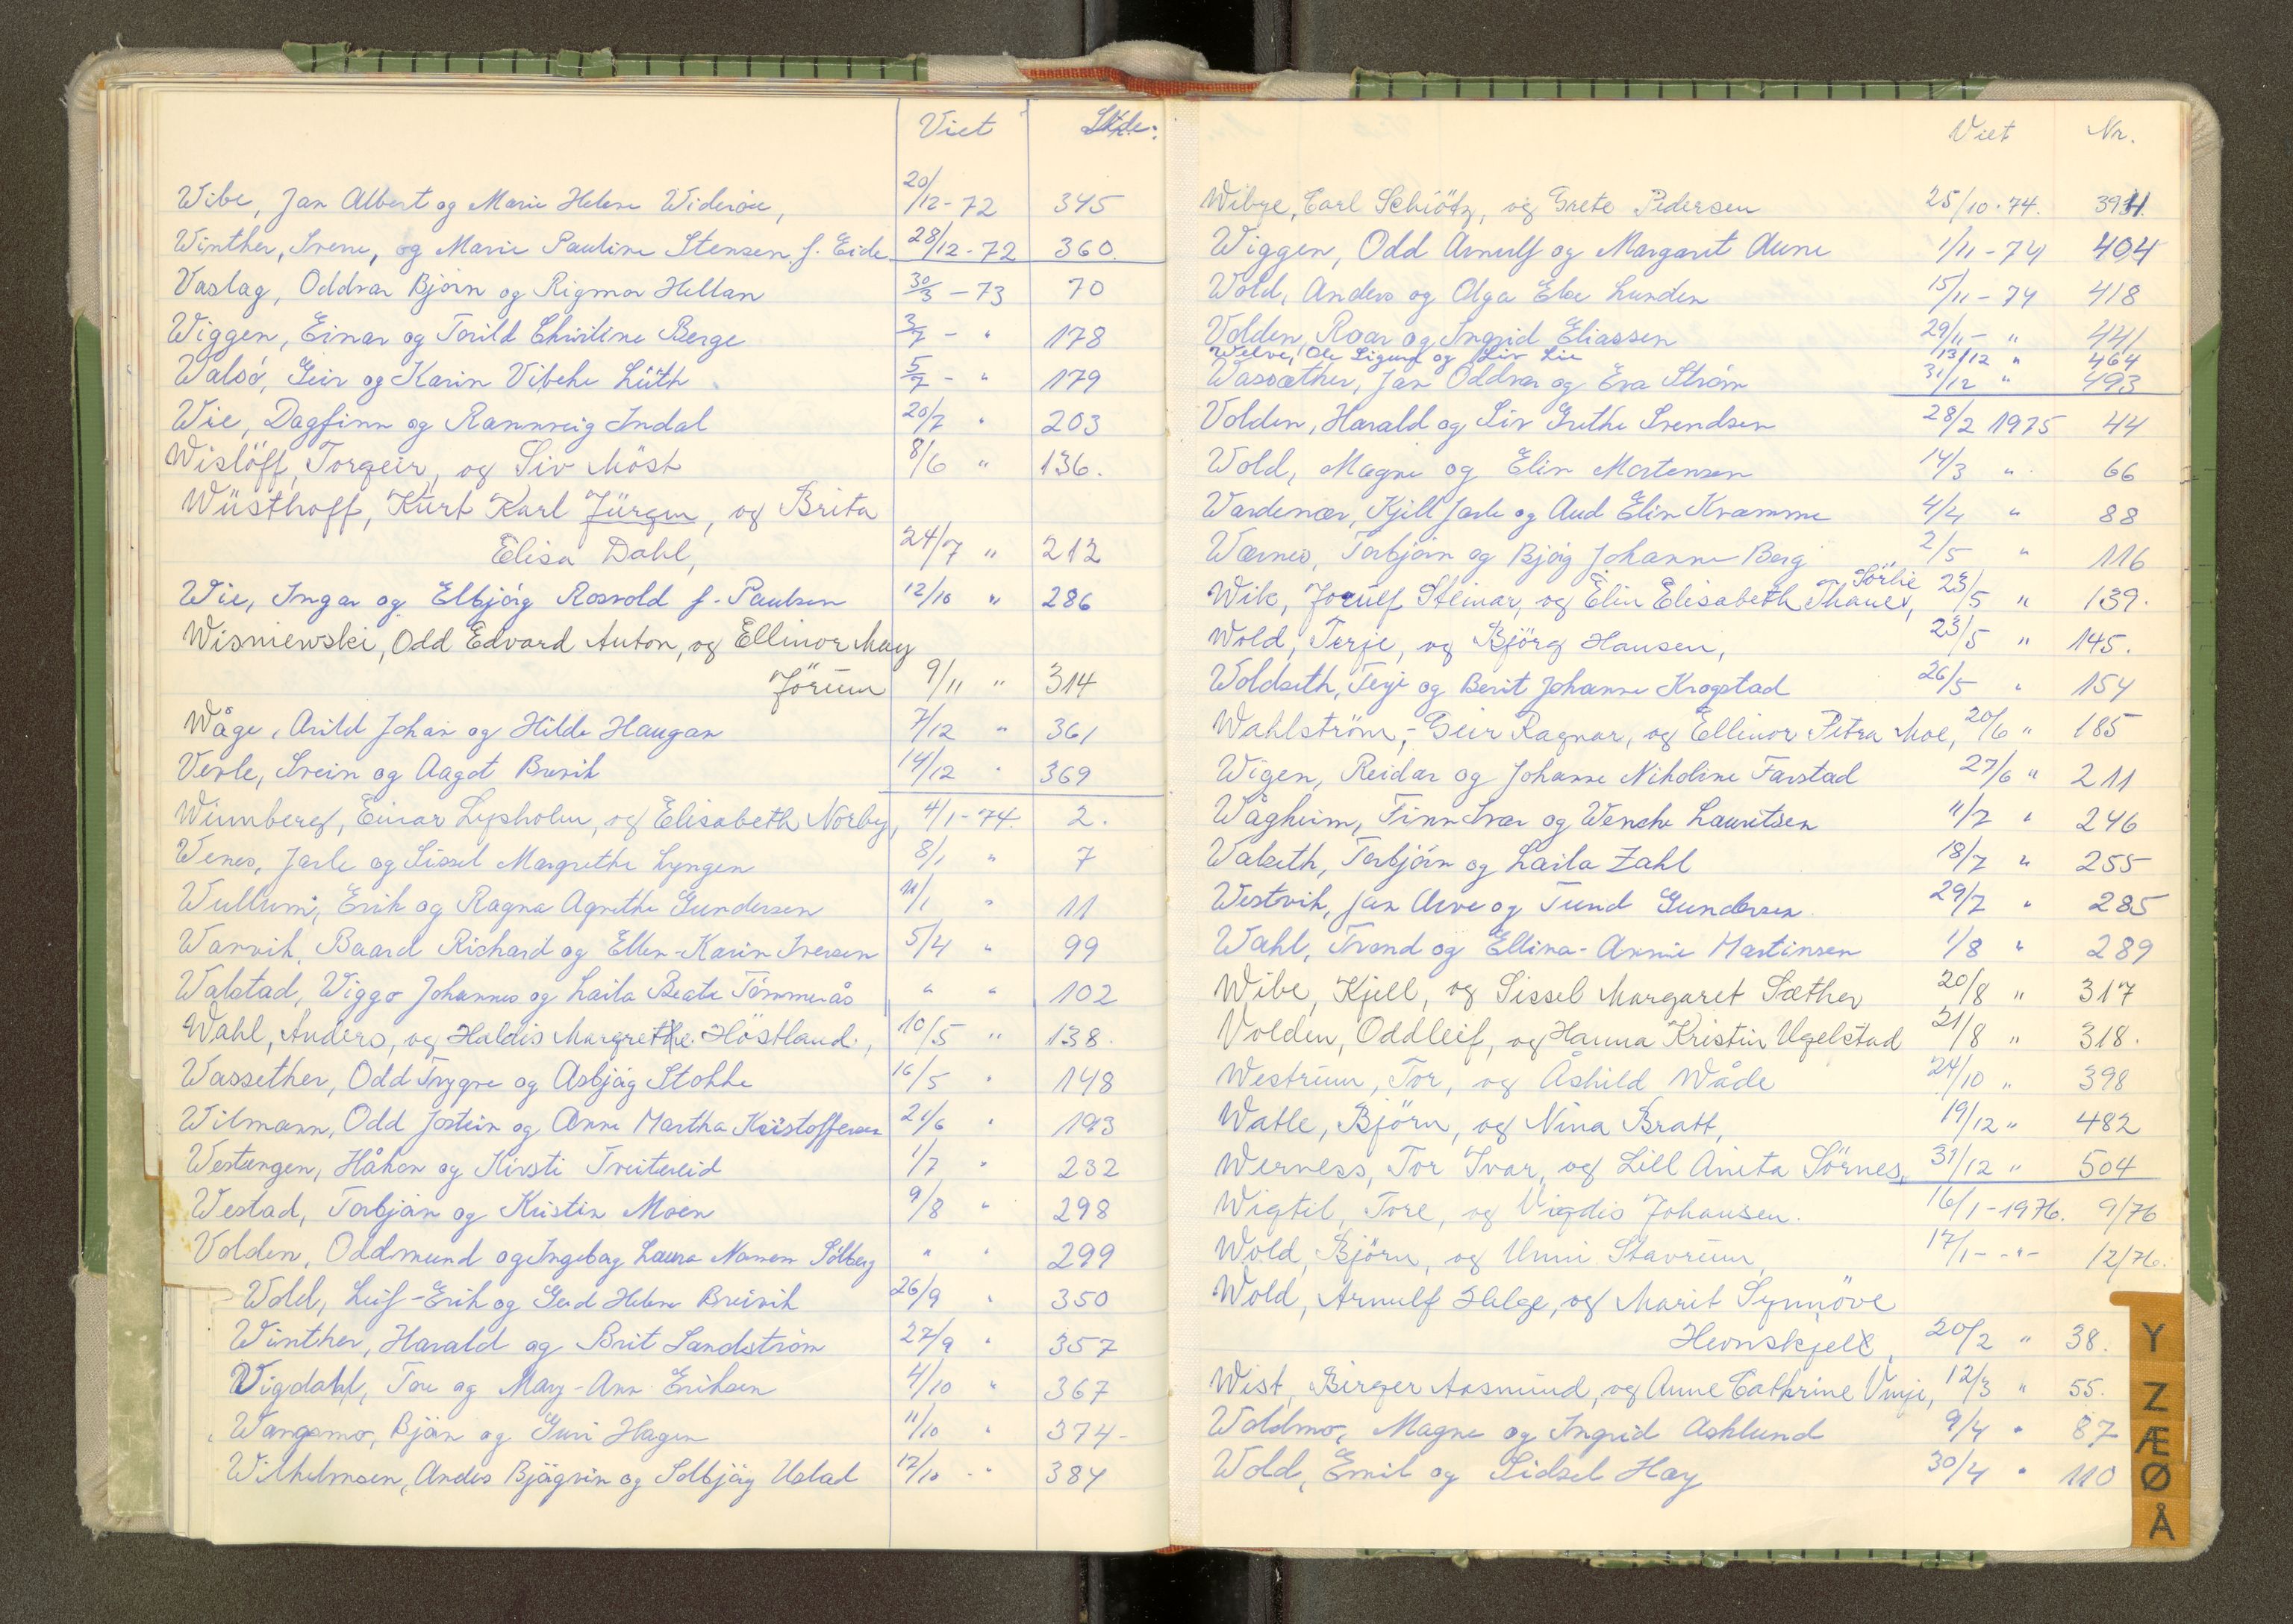 Viet
Wibe, Jan Albert og Marie Helene Widerøe, 20/12-72 345
Winther, Svenn, og Marie Pauline Stensen f. Eide 28/12-72 360
Vaslag, Oddvar Bjørn og Rigmor Hellan 30/3-73 70
Wiggen, Einar og Torild Christine Berge 3/7 - " 178
Walsø, Geir og Karin Vibeke Lüth 5/7 - " 179
Wie, Dagfinn og Rannveig Indal 20/7 " 203
Wislöff, Torgeir, og Siv Möst 8/6 " 136.
Wüsthoff, Kurt Karl Jürgen, og Brita
Elisa Dahl, 24/7 " 212
Wie, Ingar og Elbjörg Rosvold f. Paulsen 12/10 " 286
Wisniewski, Odd Edvard Anton, og Ellinor May
Jörum 9/11 " 314
Wåge, Arild Johan og Hilde Haugan 7/12 " 361
Verle, Svein og Aagot Brevik 14/12 " 369
Winnberg, Einar Lysholm, og Elisabeth Norby, 4/1-74. 2.
Wenes, Jarle og Sissel Margrethe Lyngen 8/1 " 7
Wullum, Erik og Ragna Agnethe Gundersen 11/1 " 11
Warvik, Baard Richard og Ellen-Karin Iversen 5/4 " 99
Walstad, Viggo Johannes og Laila Beate Tømmerås " " 102
Wahl, Anders, og Haldis Margrethe Höstland, 10/5 " 138.
Wassether, Odd Trygve og Asbjørg Stokke 16/5 " 148
Wilmann, Odd Jostein og Anne Martha Kristoffersen 21/6 " 193
Westengen, Håkon og Kirsti Treitereid 1/7 " 232
Westad, Torbjørn og Kristin Moen 9/8 " 298
Volden, Oddmund og Ingeborg Laura Solberg " " 299
Wold, Leif-Erik og Gerd Helene Breivik 26/9 " 350
Winther, Harald og Brit Sandström 27/9 " 357
Vigdahl, Tore og Mary-Ann Eriksen 4/10 " 367
Wangsmo, Bjørn og Guri Hagen 11/10 " 374-
Wilhelmsen, Anders Bjørgvin og Solbjørg Ustad 17/10 - " 384
Viet Nr.
Wibye, Carl Schiötz, og Grete Pedersen 25/10-74. 391.
Wiggen, Odd Arnulf og Margarit Aune 1/11-74 404
Wold, Anders og Olga Else Lunden 15/11-74 418
Volden, Roar og Ingrid Eliassen 29/11- " 441
Welve, Ole Sigurd og Liv Lie 13/12 " 464
Wassæther, Jan Oddvar og Eva Strøm 31/12 " 493
Volden, Harald og Siv Grethe Svendsen 28/2 1975 44
Wold, Magne og Elin Mortensen 14/3 " 66
Wardenær, Kjell Jarle og Aud Elin Kvamme 4/4 " 88
Wærnes, Torbjørn og Bjørg Johanne Berg 2/5 " 116
Sörlie
Wik, Jorulf Steinar, og Elin Elisabeth Thanes, 23/5 " 139.
Wold, Terje, og Björg Hansen, 23/5 " 145.
Woldseth, Terje og Berit Johanne Krogstad 26/5 " 154
Wahlström, Geir Ragnar, og Ellinor Petra Moe, 20/6 " 185
Wigen, Reidar og Johanne Nikoline Farstad 27/6 " 211
Wågheim, Finn Ivar og Wenche Lauritsen 11/7 " 246
Walseth, Torbjørn og Laila Zahl 18/7 " 255
Westvik, Jan Arve og Turid Gundersen 29/7 " 285
Wahl, Trond og Ellina-Annie Martinsen 1/8 " 289
Wibe, Kjell, og Sissel Margaret Sæther 20/8 " 317
Volden, Oddleif, og Hanna Kristin Ugelstad 21/8 " 318.
Westrum, Tor, og Åshild Wåde 24/10 " 398
Watle, Björn, og Nina Bratt, 19/12 " 482
Werness, Tor Ivar, og Lill Anita Sörnes, 31/12 " 504
Wigtil, Tore, og Vigdis Johansen. 16/1-1976. 9/76
Wold, Björn, og Unni Stavrum, 17/1- - " - 12/76.
Wold, Arnulf Helge, og Marit Synnöve
Hevnskjell, 20/2 " 38.
Wist, Birger Aasmund, og Anne Cathrine Vinje, 12/3 " 55.
Woldmo, Magne og Ingrid Asklund 9/4 " 87
Wold, Emil og Sidsel Hay 30/4 " 110
Y
Z
Æ
Ø
Å